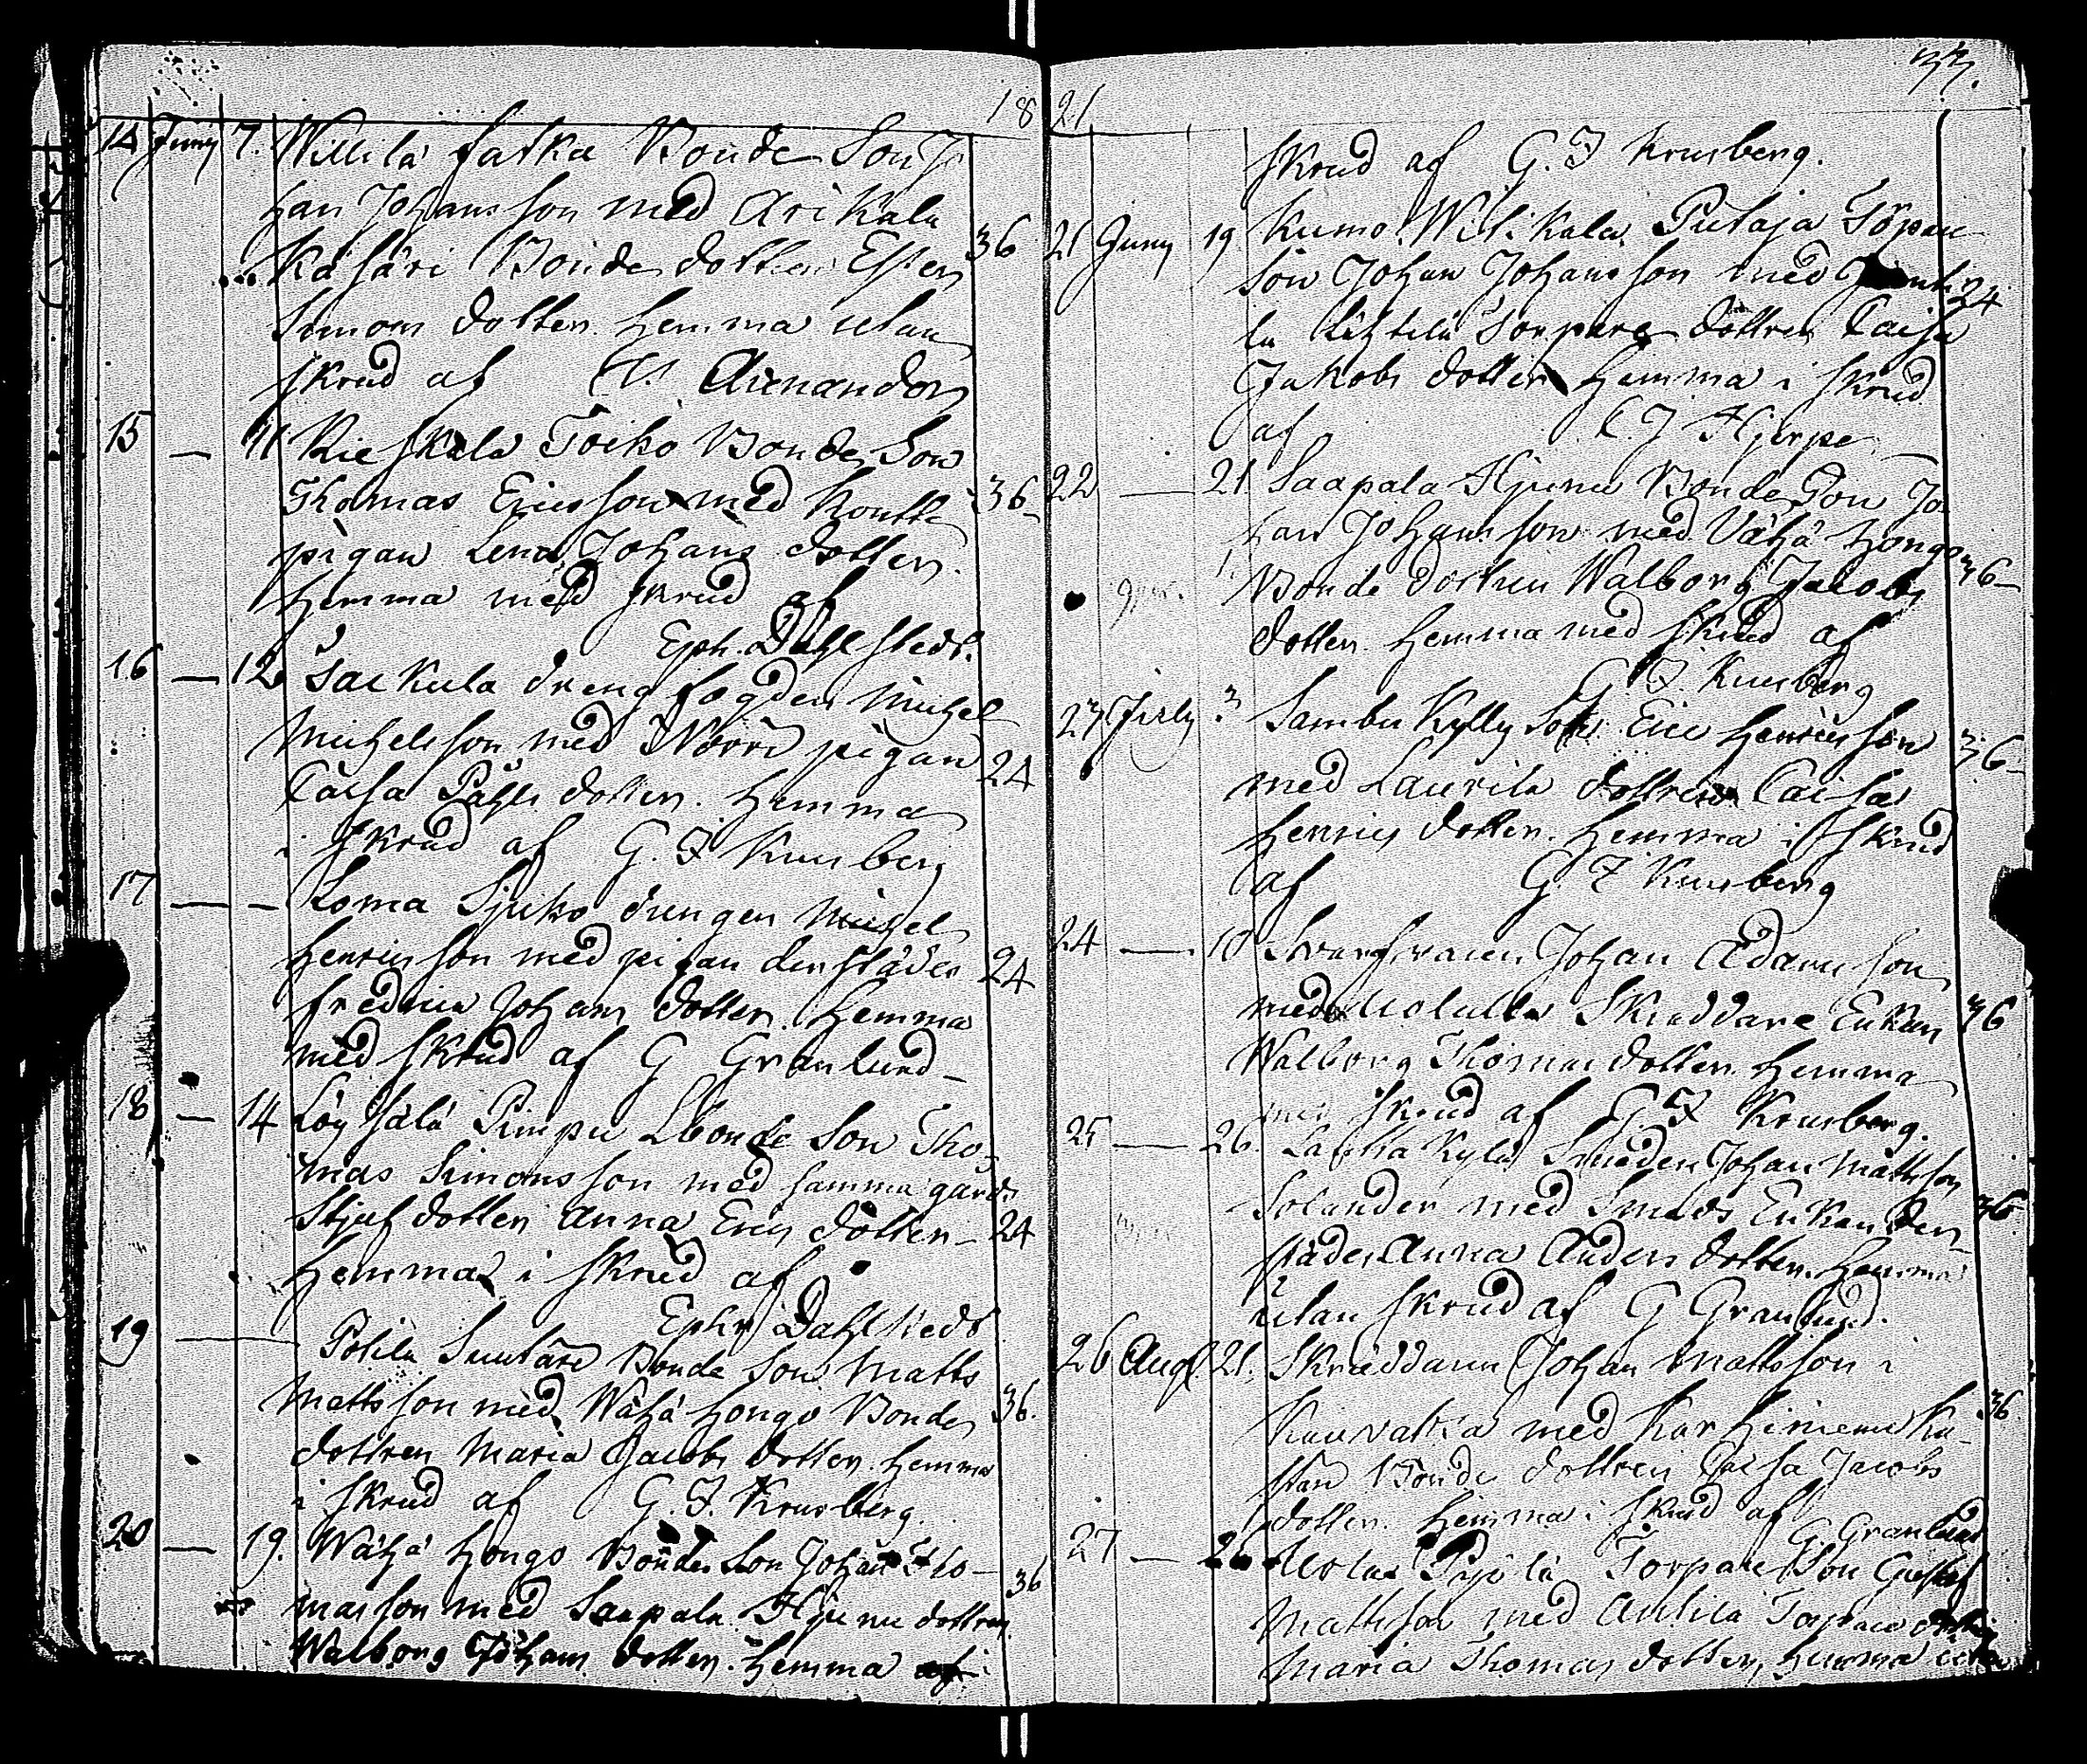 18
14 Juny 7. Willilä Saska Bonde Son Jo
han Johansson med Arikala
Käsäri Bonde dottren Ester 36
Simons dotter. hemma utan
skrud af Alenander
15 — 11 Kieskala Toiko Bonde Son
Thomas Ericsson med 36
pigan Lena Johans dotter.
hemma med skrud af
Eph. Dahlstedt.
16 — 12 Säckula dreng fogden Michel
Michelsson med Norri pigan
Caisa Påhls dotter. hemma 24
i skrud af G. F. Krusberg
17 — — Loma Sjuko drengen Michel
Henricsson med pigan derstädes 24
Fredrica Johans dotter. hemma
med skrud af G Granlund —
18 — 14 Löysälä Pimpu Bonde Son Tho-
mas Simonsson med samma gårds
Stjuf dotter Anna Erics dotter — 24
hemma i skrud af
Ephr Dahlstedt
19 — Potila Suutare Bonde Son Matts
Mattsson med Wähä Hongo Bonde 36.
dottren Maria Jacobs dotter. hemma
i skrud af G. F. Krusberg.
20 — 19. Wähä Hongo Bonde Son Johan Tho-
masson med Saapala Hjunu dottren 36
Walborg Johans dotter. hemma i
21
33.
skrud af G. F Krusberg.
21 Juny 19 Kumo Wilikala Putaja Torpare
son Johan Johansson med 24
la Torpare dottren Caisa
Jakobs dotter hemma i skrud
af C. J Hjerpe
22 — 21 Saapala Hjunu Bonde Son Jo
han Johansson med Vähä Hongo
Bonde dottren Walborg Jacobs 36 —
dotter. hemma med skrud af
G. F. Krusberg
23 July 3 Sambu Kylly Son Eric Henricsson 36 —
med Laurila dottren Caisa
Henrics dotter. hemma i skrud
af G. F Krusberg
24 — 10 Johan Adamsson
med Skräddare Enkan 36
Walborg Thomas dotter. hemma
med skrud af G F Krusberg.
25 — 26. Kylä Smeden Johan Mattsson
Solander med Smeds Enkan der- 36
städes Anna Anders dotter. hemma
utan skrud af G Granlund.
26 Aug. 21. Skräddaren Johan Mattsson i
Kauvatsa med Karhiniemi Ka- 36
Bonde dottren Caisa Jacobs
dotter. hemma i skrud af
G Granlund
27 — Torpare Son Gustaf
Mattsson med Anttila Torpare
Maria Thomas dotter, hemma utan